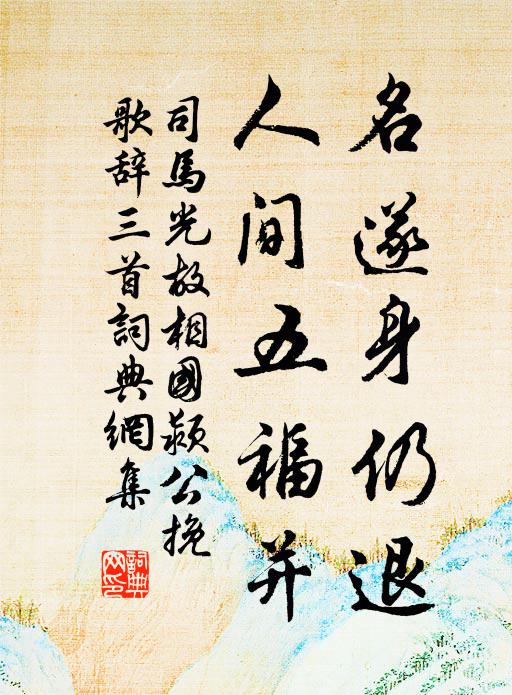 名遂身仍退
人间五福并
司馬光故相國颍公挽
歌辞三首詞典網集
詞典
网印